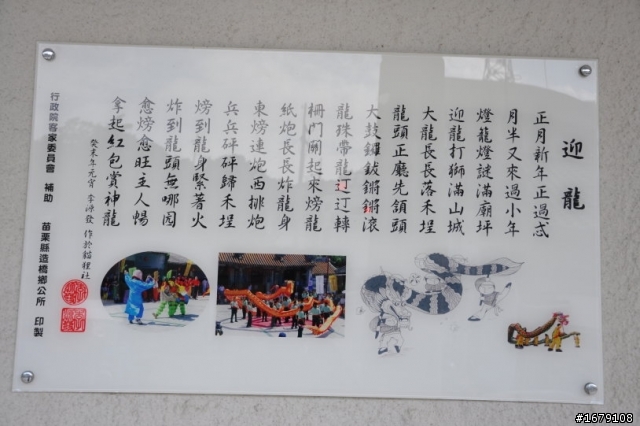 迎龍
正月新年正過忒
月半又來過小年
燈籠燈謎滿廟坪
迎龍打獅滿山城
大龍長長落禾埕
龍頭正廳先領頭
大鼓鑼鈸鏘鏘滾
龍珠帶龍辽辽轉
柵門關起來㷮龍
紙炮長長炸龍身
東㷮連炮西排炮
兵兵砰砰歸禾埕
㷮到龍身緊著火
炸到龍頭無哪囥
愈㷮愈旺主人暢
拿起紅包賞神龍
癸未年元宵 李沛發 作於貓貍社
行政院客家委員會 補助 苗栗縣造橋鄉公所 印製
#1679108